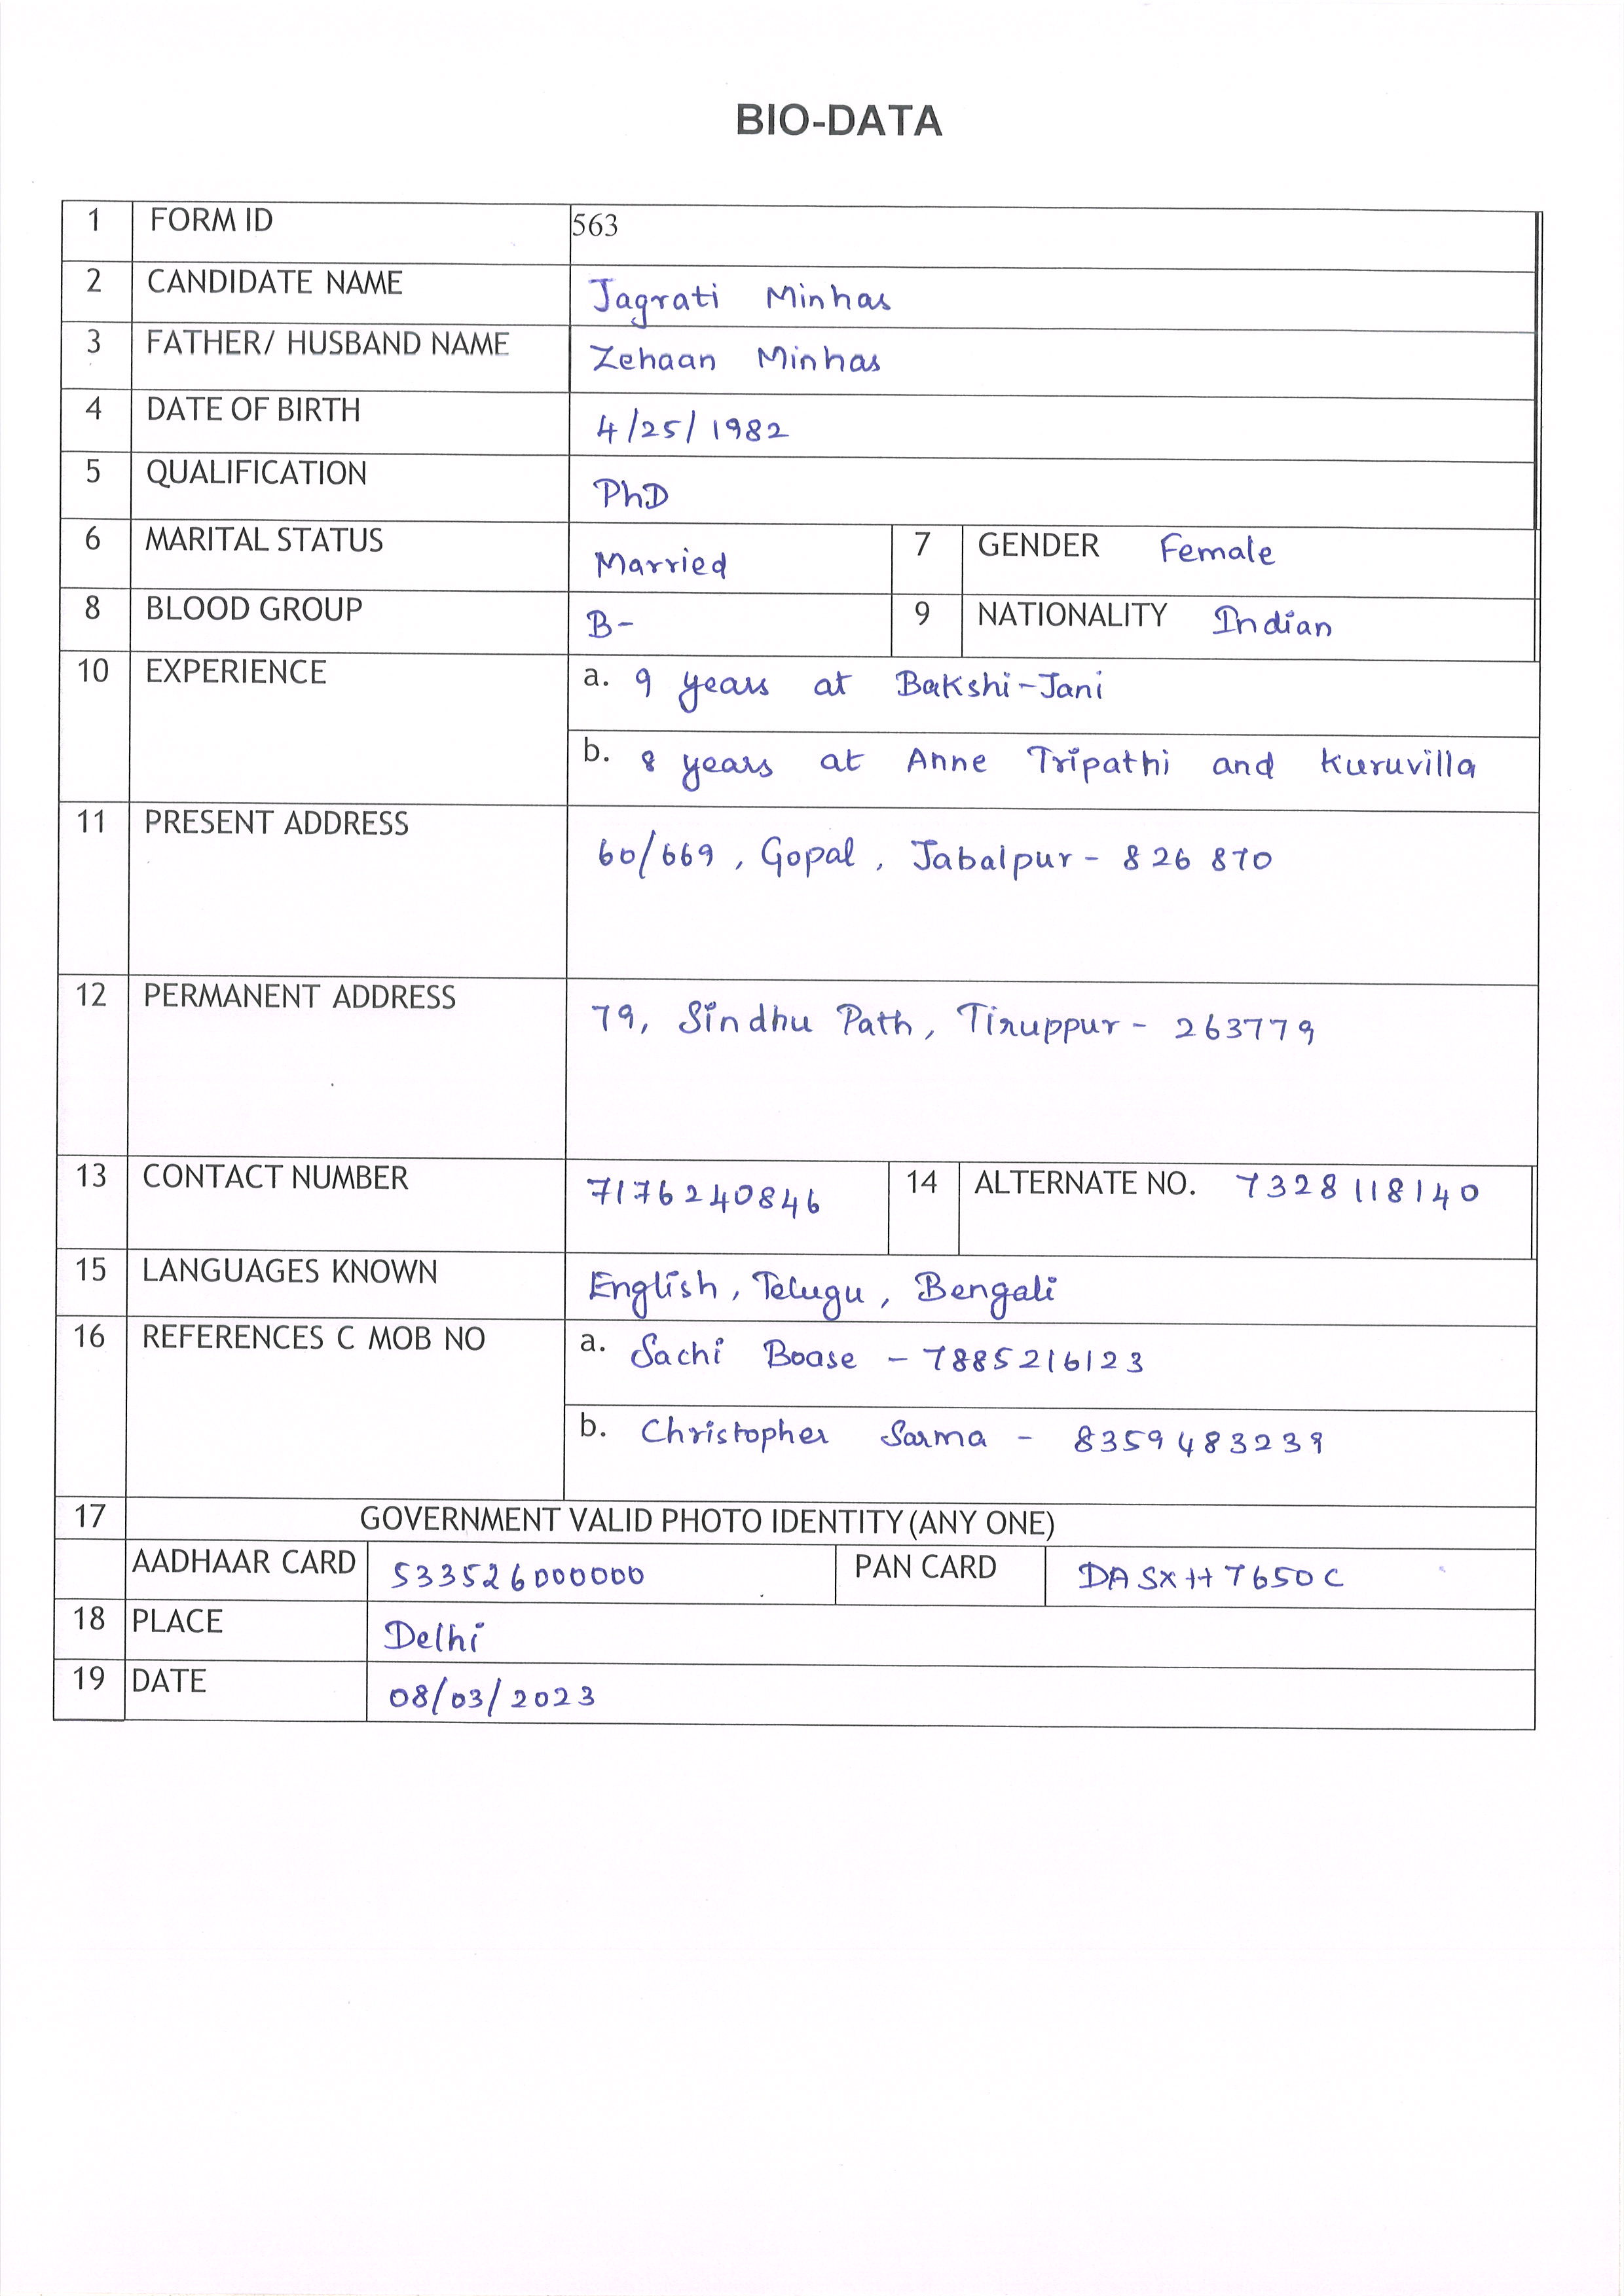 BIO-DATA
1 FORM ID 563
2 CANDIDATE NAME Jagrati Minhas
3 FATHER/ HUSBAND NAME Zehaan Minhas
4 DATE OF BIRTH 4/25/1982
5 QUALIFICATION PhD
6 MARITAL STATUS Married 7 GENDER Female
8 BLOOD GROUP B- 9 NATIONALITY Indian
10 EXPERIENCE a. 9 years at Bakshi-Jani
b. 8 years at Anne Tripathi and Kuruvilla
11 PRESENT ADDRESS 60/669, Gopal, Jabalpur - 826 870
12 PERMANENT ADDRESS 79, Sindhu Path, Tiruppur - 263779
13 CONTACT NUMBER 7176240846 14 ALTERNATE NO. 7328118140
15 LANGUAGES KNOWN English, Telugu, Bengali
16 REFERENCES C MOB NO a. Sachi Boase - 7885216123
b. Christopher Sarma - 8359483239
17 GOVERNMENT VALID PHOTO IDENTITY (ANY ONE)
AADHAAR CARD 533526000000 PAN CARD DASXH7650C
18 PLACE Delhi
19 DATE 08/03/2023